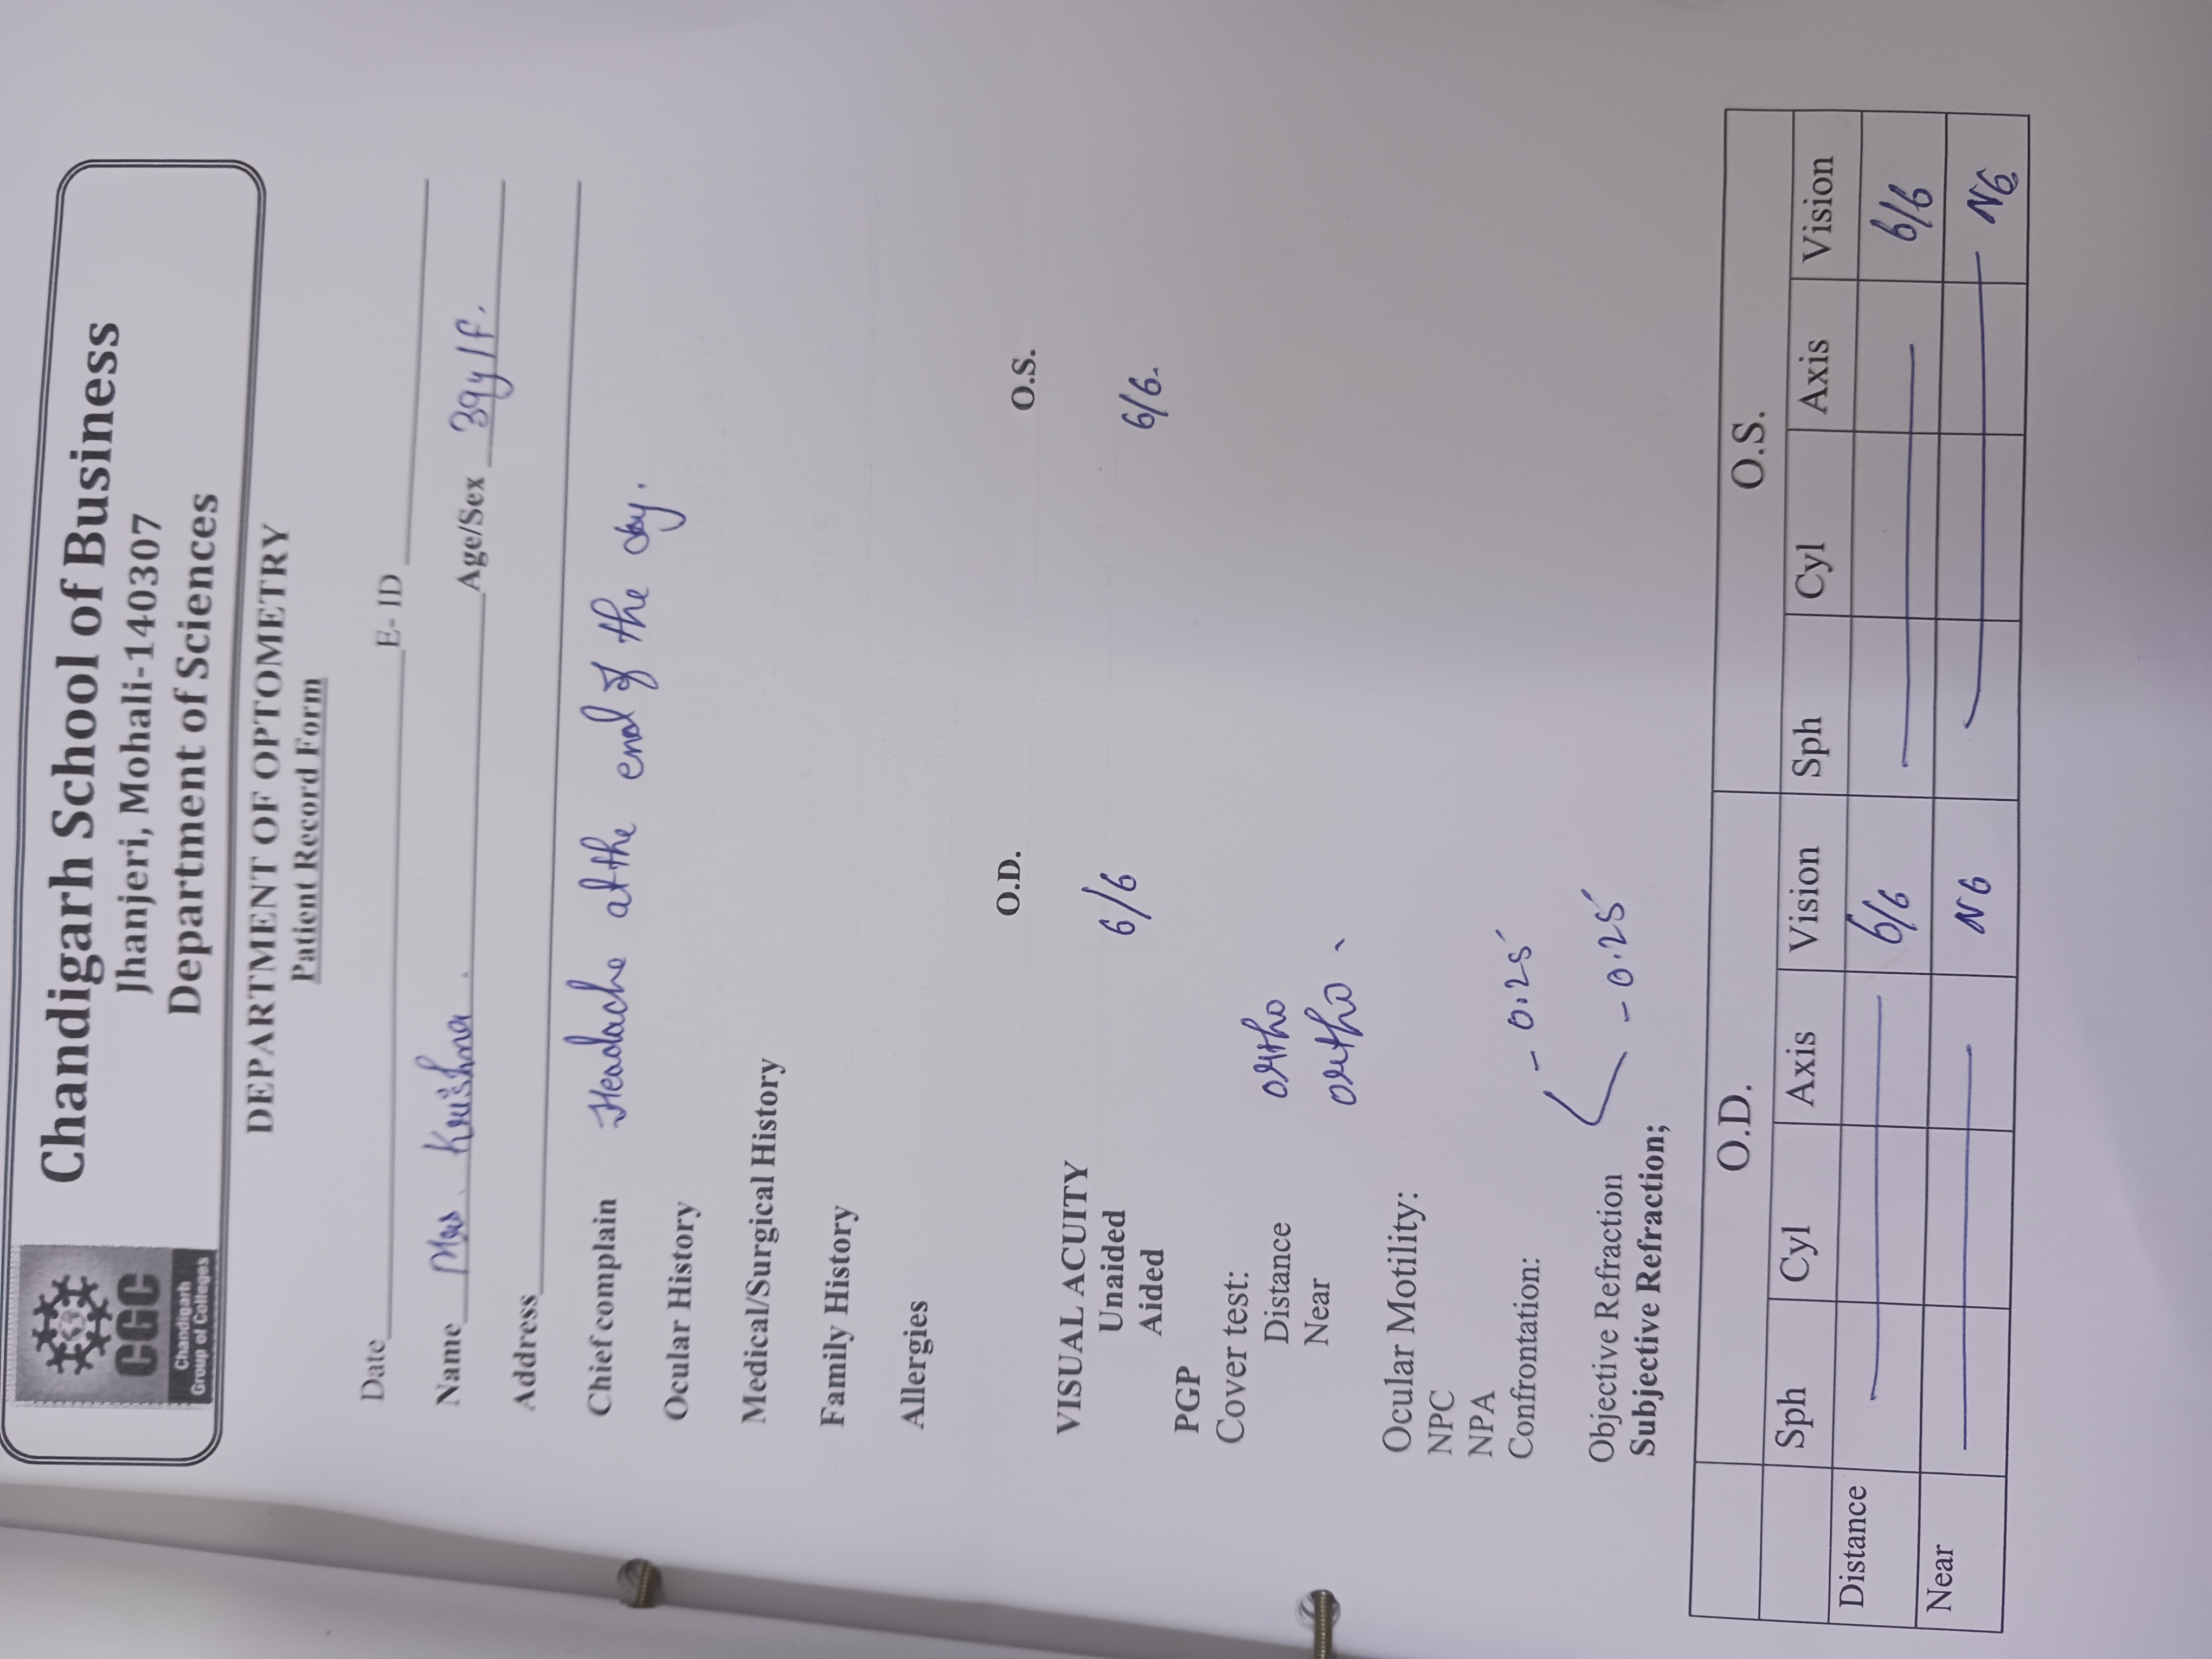 CGC
Chandigarh
Group of Colleges
Chandigarh School of Business
Jhanjeri, Mohali-140307
Department of Sciences
DEPARTMENT OF OPTOMETRY
Patient Record Form
Date E- ID
Name Mrs. Krishna. Age/Sex 39y/F.
Address
Chief complain Headache at the end of the day.
Ocular History
Medical/Surgical History
Family History
Allergies
O.D. O.S.
VISUAL ACUITY
Unaided 6/6 6/6.
Aided
PGP
Cover test:
Distance ortho
Near ortho.
Ocular Motility:
NPC
NPA
Confrontation:
- 0.25
Objective Refraction - 0.25
Subjective Refraction;
O.D. O.S.
Sph Cyl Axis Vision Sph Cyl Axis Vision
Distance 6/6 6/6
Near N6 N6